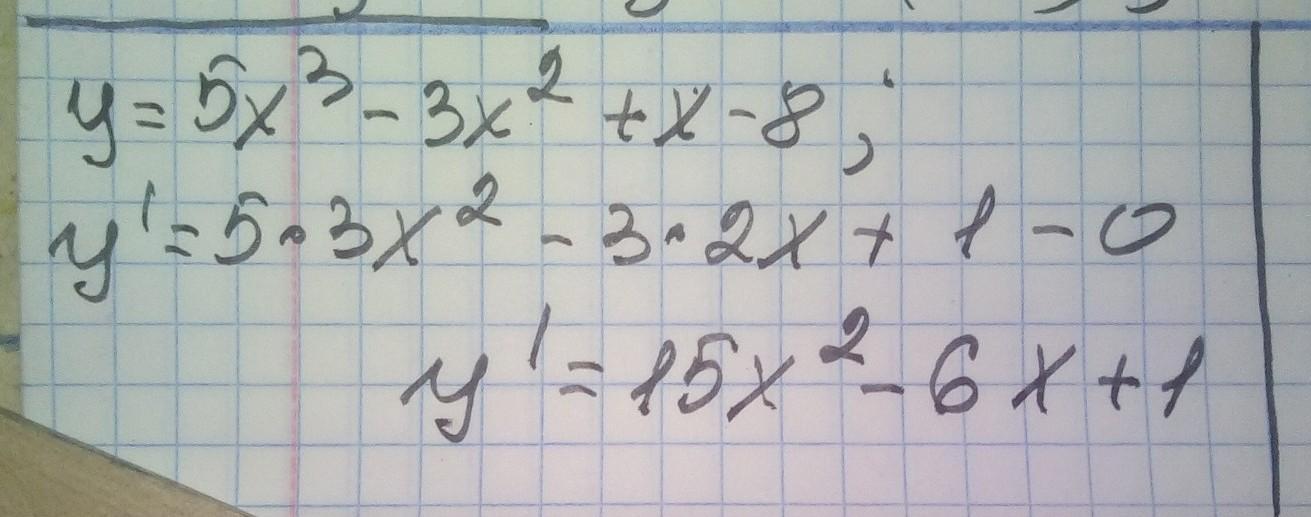 y = 5x³ - 3x² + x - 8;
y' = 5·3x² - 3·2x + 1 - 0
y' = 15x² - 6x + 1